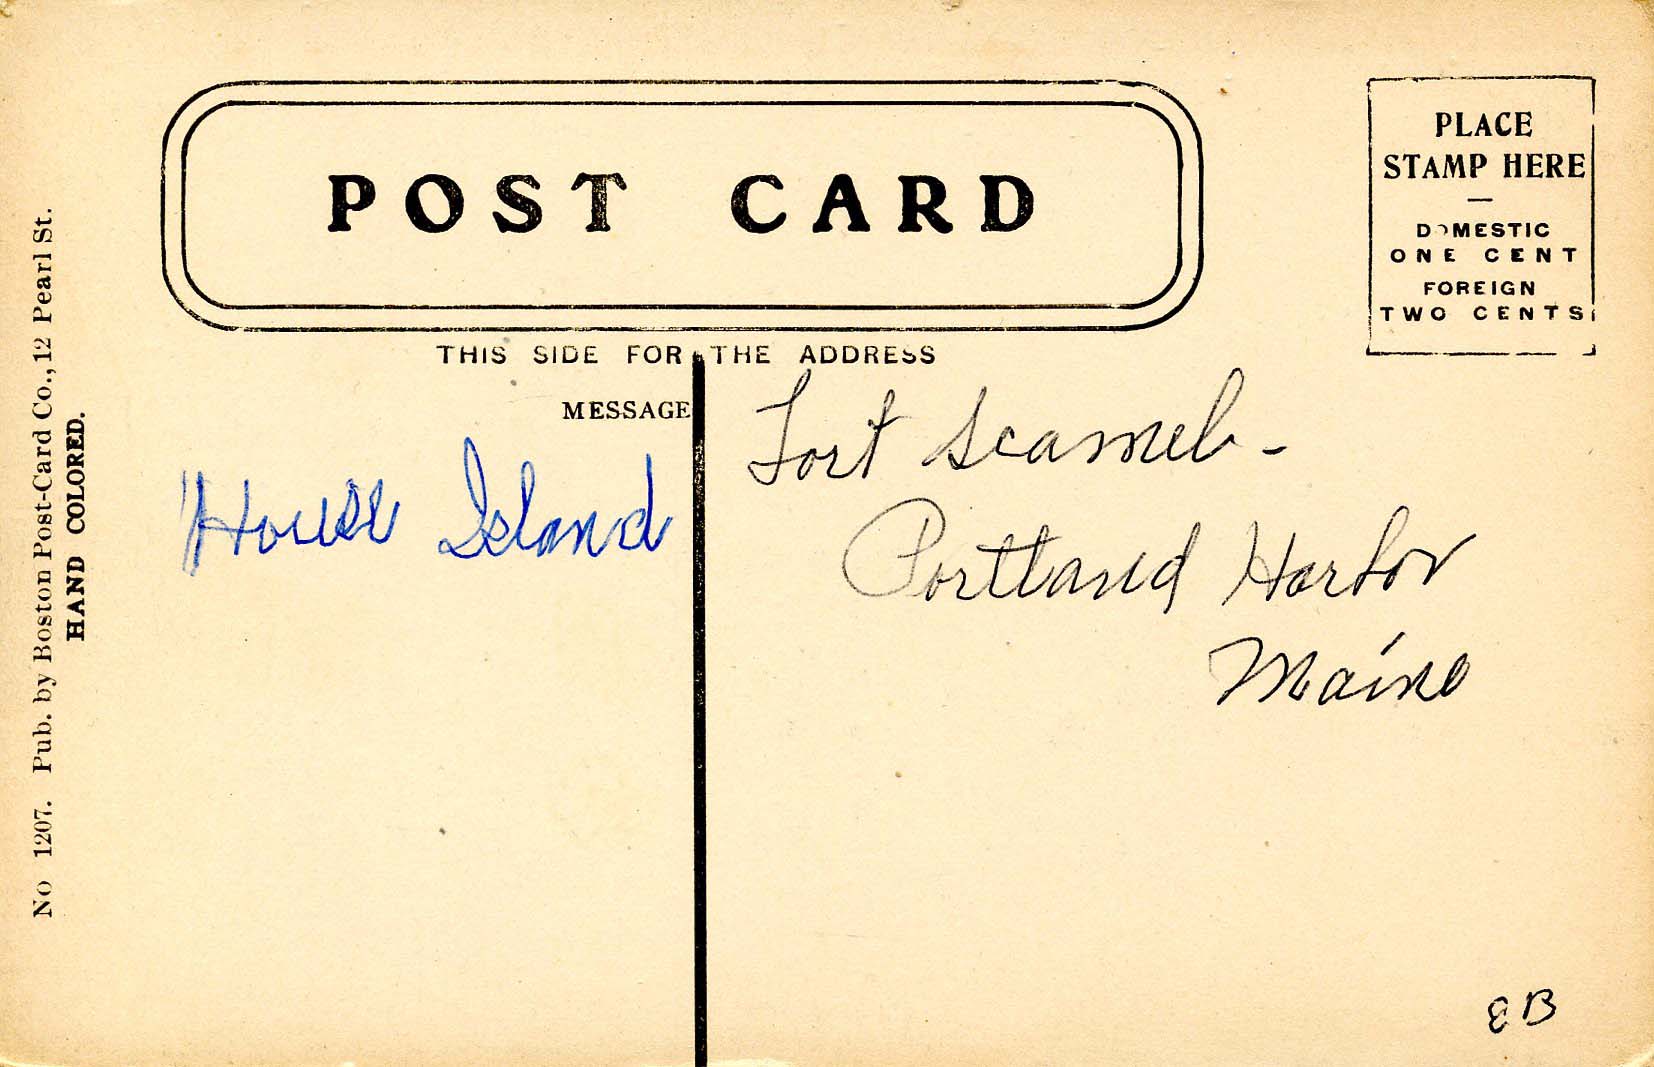 POST CARD
PLACE
STAMP HERE
DOMESTIC
ONE CENT
FOREIGN
TWO CENTS
THIS SIDE FOR THE ADDRESS
MESSAGE
House Island
Fort Scamel -
Portland Harbor
Maine
EB
No 1207. Pub. by Boston Post-Card Co., 12 Pearl St.
HAND COLORED.